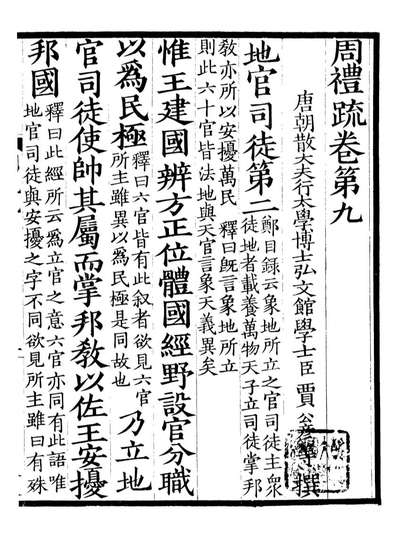 周禮疏卷第九
唐朝散大夫行太學博士弘文館學士臣賈公彥等撰
地官司徒第二
鄭目録云象地所立之官司徒主衆
徒地者載養萬物天子立司徒掌邦
教亦所以安擾萬民 釋曰既言象地所立
則此六十官皆法地與天官言象天義異矣
惟王建國辨方正位體國經野設官分職
以爲民極
釋曰六官皆有此叙者欲見六官
所主雖異以爲民極是同故也
乃立地
官司徒使帥其屬而掌邦敎以佐王安擾
邦國
釋曰此經所云爲立官之意六官亦同有此語唯
地官司徒與安擾之字不同欲見所主雖曰有殊